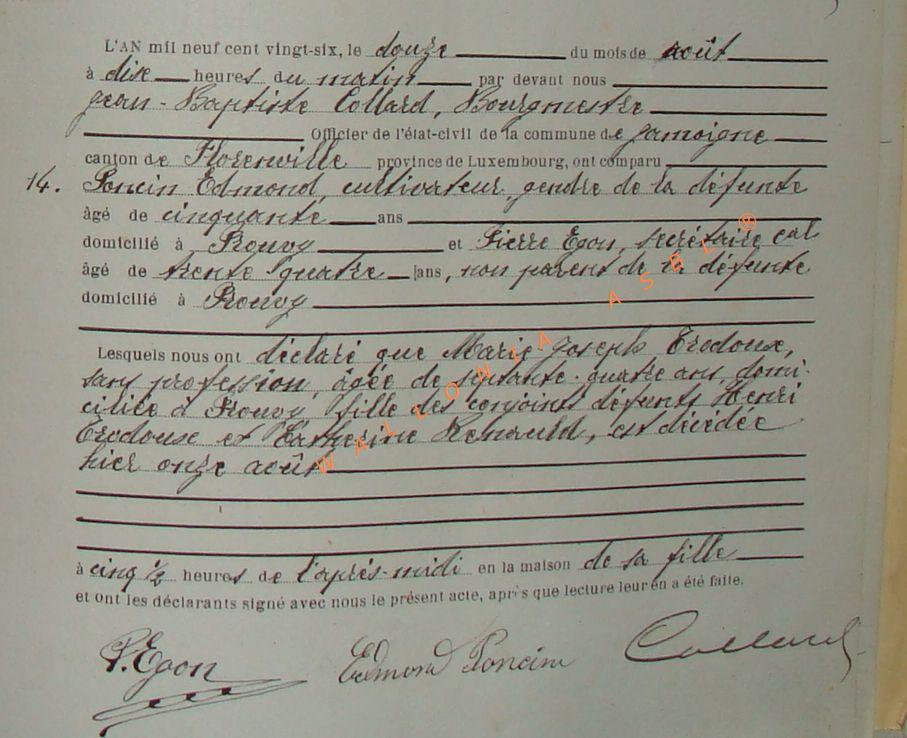 L'AN mil neuf cent vingt-six, le douze du mois de août
à dix heures du matin par devant nous
Jean-Baptiste Collard, Bourgmestre
Officier de l'état-civil de la commune de Jamoigne
canton de Florenville province de Luxembourg, ont comparu
14. Poncin Edmond, cultivateur, gendre de la défunte
âgé de cinquante ans
domicilié à Prouvy et Pierre Egon, secrétaire cal
âgé de trente quatre ans, non parent de la défunte
domicilié à Prouvy
Lesquels nous ont déclaré que Marie-Joseph
sans profession, âgée de septante-quatre ans, domi-
ciliée à Prouvy fille des conjoints défunts Henri
et Catherine Renauld, est décédée
hier onze août
à cinq ½ heures de l'après-midi en la maison de sa fille
et ont les déclarants signé avec nous le présent acte, après que lecture leur en a été faite.
P. Egon Edmond Poncin Collard
WALLONIA ASBL ®